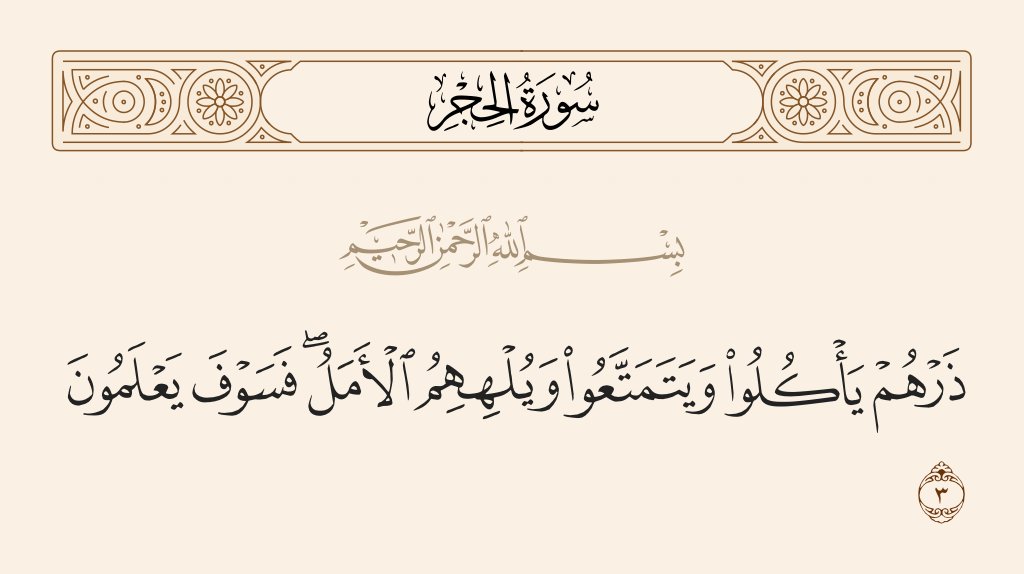 سُورَةُ الحِجْرِ
بِسْمِ ٱللَّهِ ٱلرَّحْمَٰنِ ٱلرَّحِيمِ
ذَرْهُمْ يَأْكُلُوا۟ وَيَتَمَتَّعُوا۟ وَيُلْهِهِمُ ٱلْأَمَلُ ۖ فَسَوْفَ يَعْلَمُونَ
٣